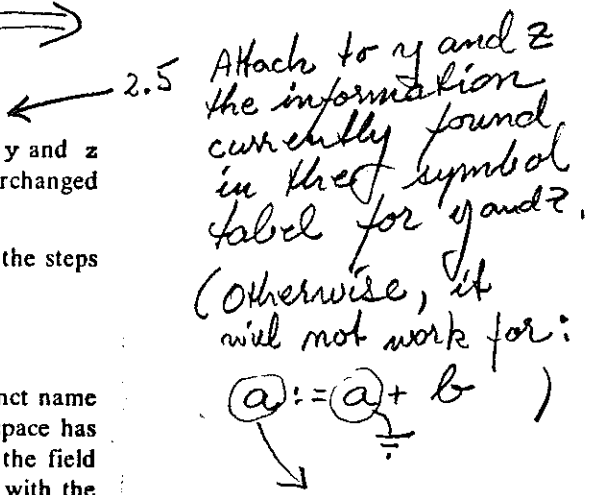 2.5 Attach to y and z
the information
currently found
in the symbol
tabel for y and z.
(otherwise, it
will not work for:
a := a + b )
y and z
rchanged
the steps
nct name
space has
the field
with the